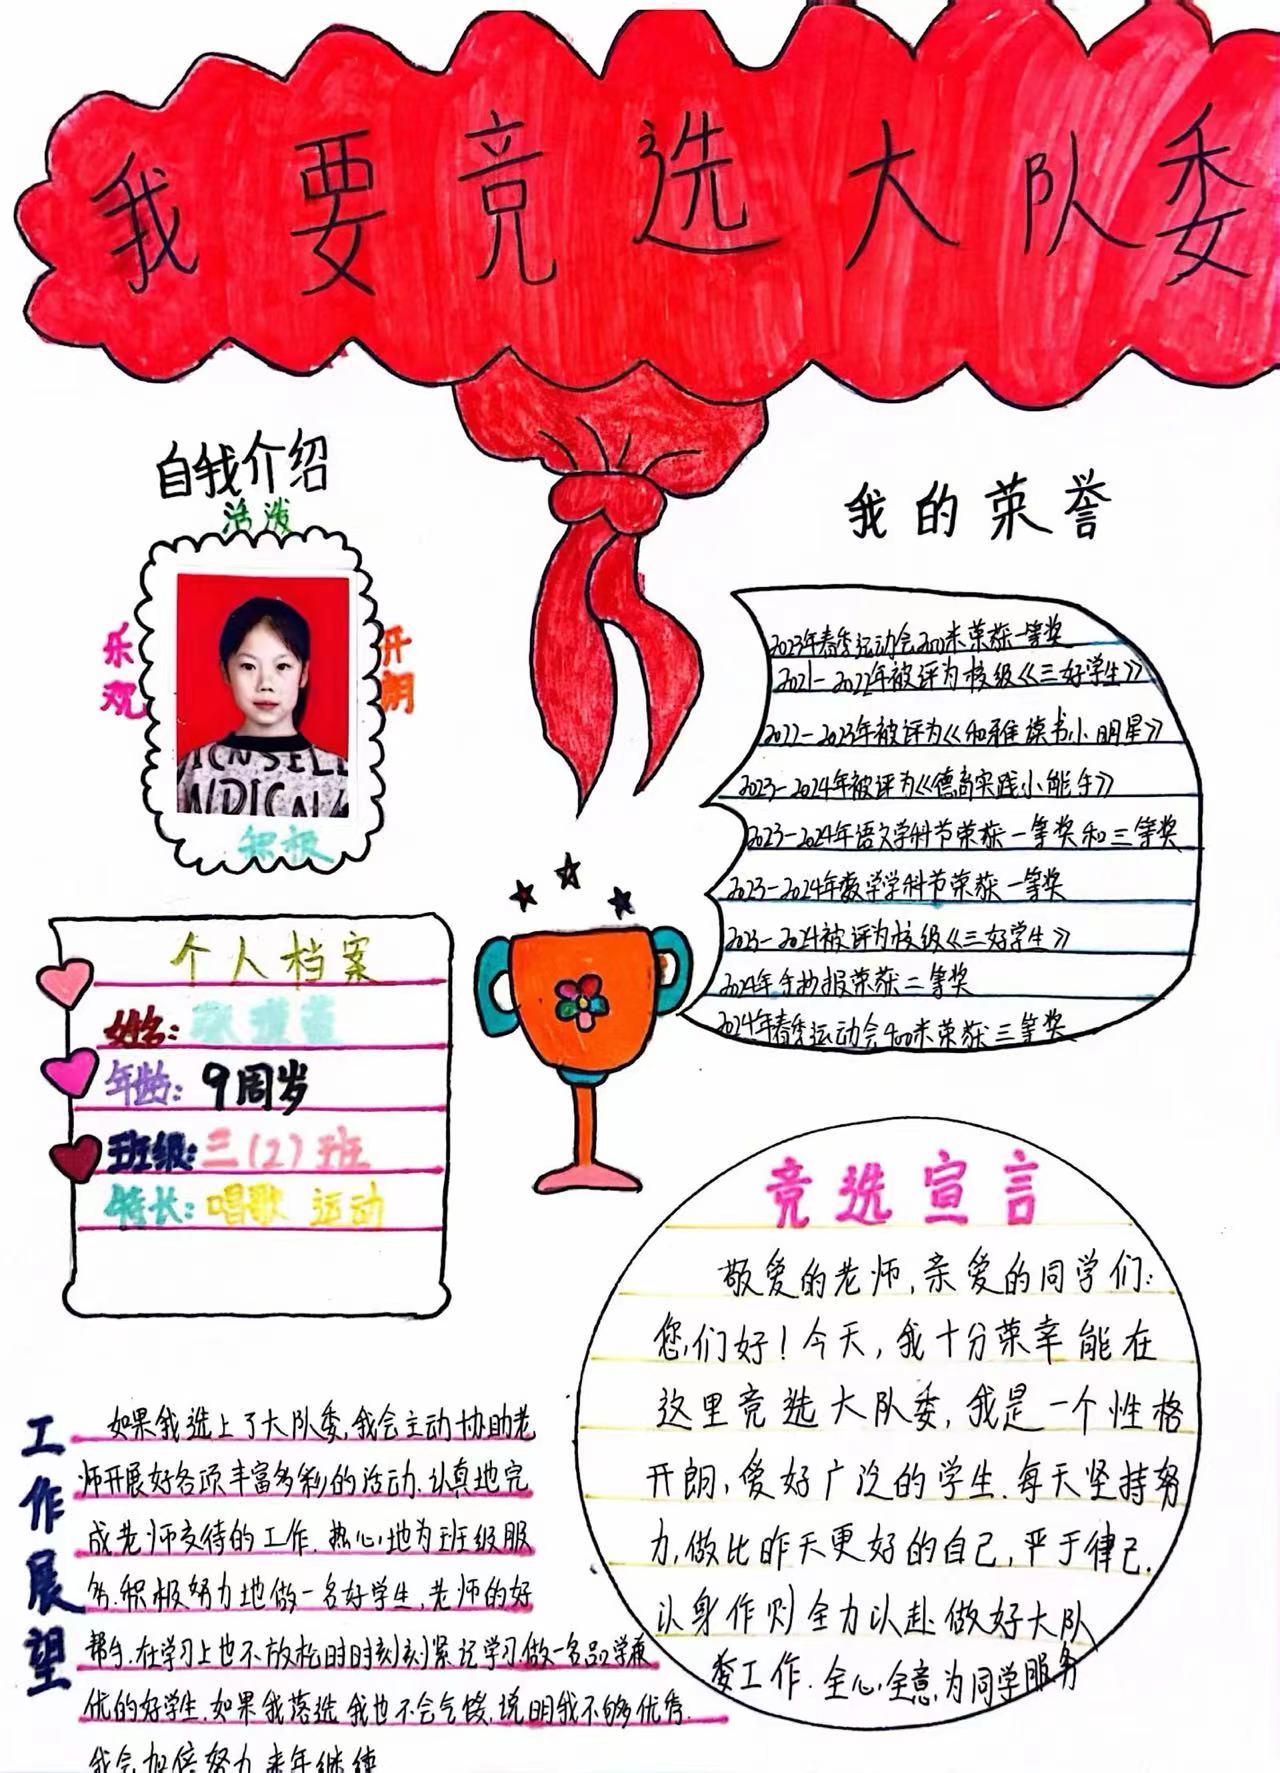 我要竞选大队委
自我介绍
活泼
乐观
开朗
积极
我的荣誉
2023年春季运动会200米荣获一等奖
2021-2022年被评为校级《三好学生》
2022-2023年被评为《和雅读书小明星》
2023-2024年被评为《德育实践小能手》
2023-2024年语文学科节荣获一等奖和三等奖
2023-2024年数学学科节荣获一等奖
2023-2024被评为校级《三好学生》
2024年手抄报荣获二等奖
2024年春季运动会400米荣获三等奖
个人档案
姓名:
年龄: 9周岁
班级: 三(2)班
特长: 唱歌 运动
竞选宣言
敬爱的老师,亲爱的同学们:
您们好!今天,我十分荣幸能在
这里竞选大队委,我是一个性格
开朗,爱好广泛的学生.每天坚持努
力,做比昨天更好的自己,严于律己.
以身作则全力以赴做好大队
委工作.全心全意为同学服务
工作展望
如果我选上了大队委,我会主动协助老
师开展好各项丰富多彩的活动.认真地完
成老师交待的工作.热心地为班级服
务.积极努力地做一名好学生,老师的好
帮手.在学习上也不放松时时刻刻紧记学习.做一名品学兼
优的好学生.如果我落选我也不会气馁.说明我不够优秀.
我会加倍努力来年继续